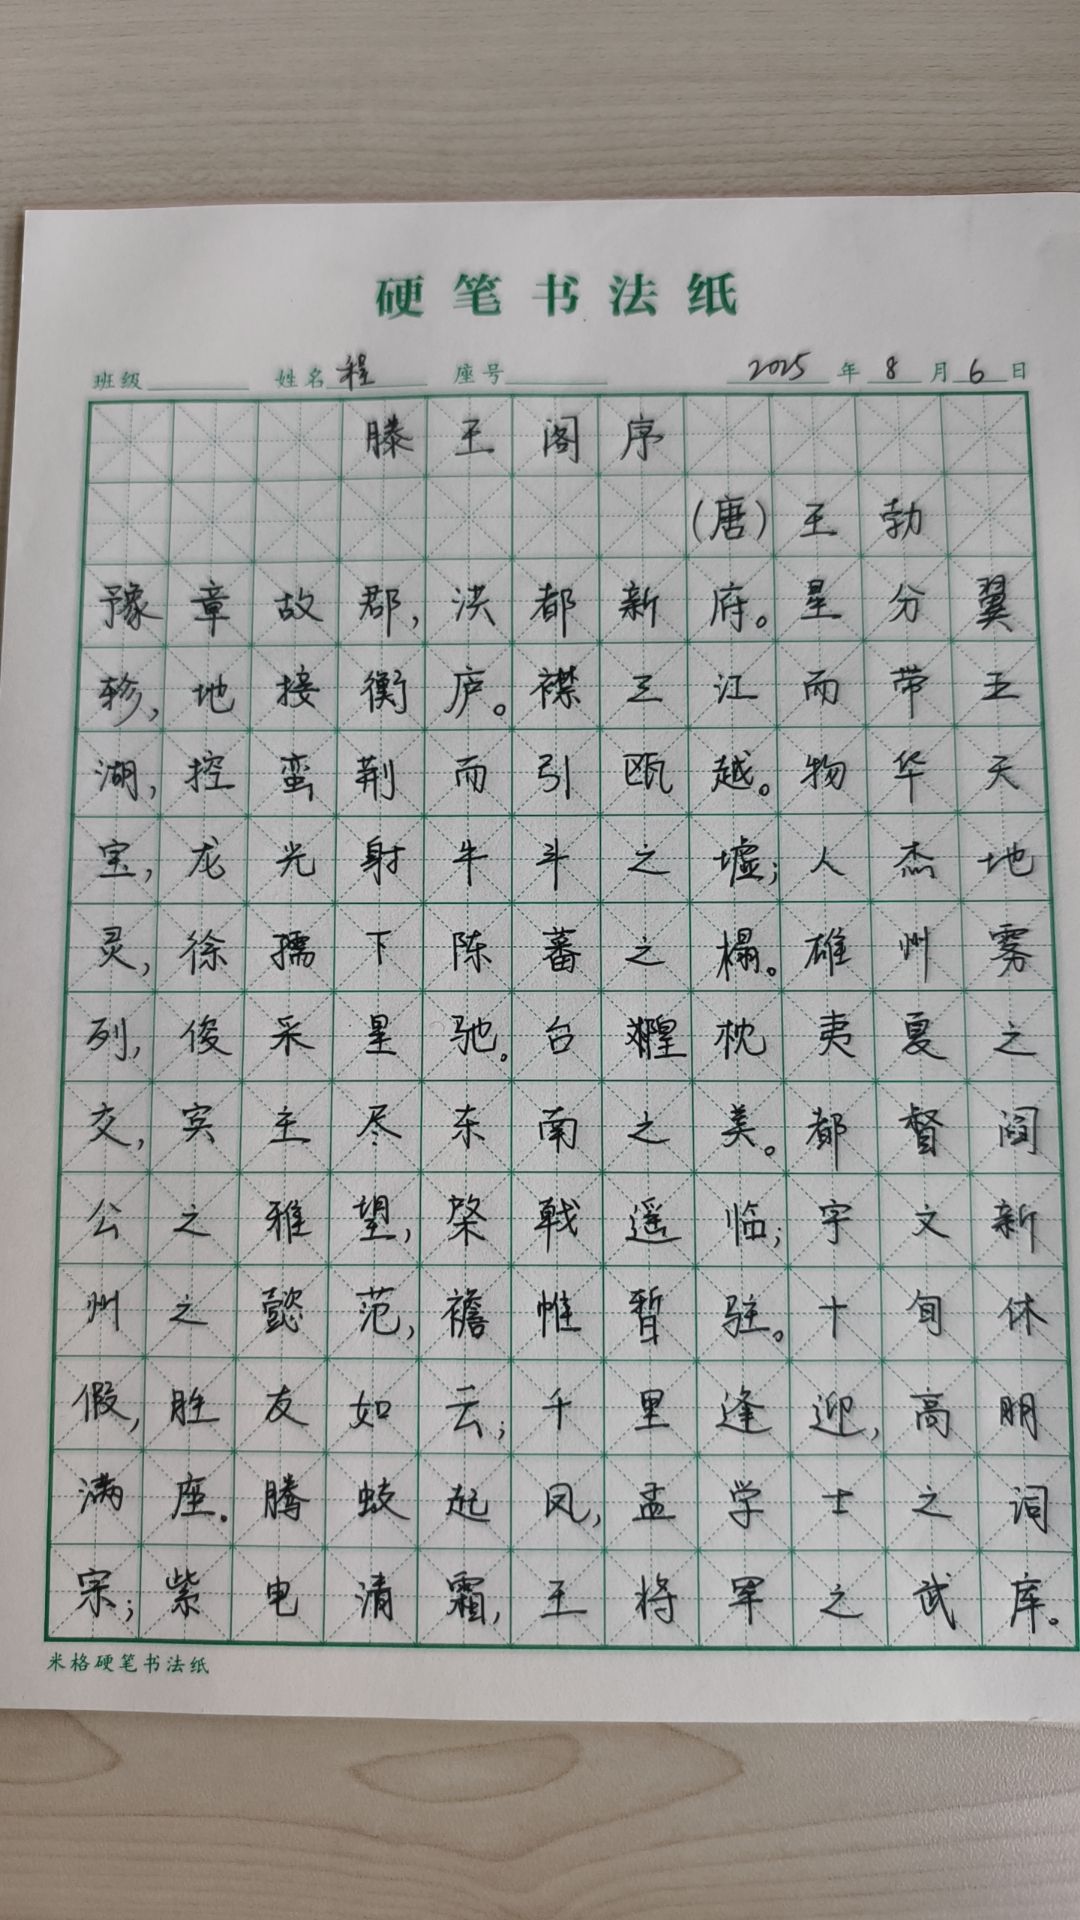 硬笔书法纸
班级 姓名 程 座号 2025 年 8 月 6 日
滕王阁序
(唐)王勃
豫章故郡,洪都新府。星分翼
轸,地接衡庐。襟三江而带五
湖,控蛮荆而引瓯越。物华天
宝,龙光射牛斗之墟;人杰地
灵,徐孺下陈蕃之榻。雄州雾
列,俊采星驰。台隍枕夷夏之
交,宾主尽东南之美。都督阎
公之雅望,棨戟遥临;宇文新
州之懿范,襜帷暂驻。十旬休
假,胜友如云;千里逢迎,高朋
满座.腾蛟起凤,孟学士之词
宗;紫电清霜,王将军之武库。
米格硬笔书法纸